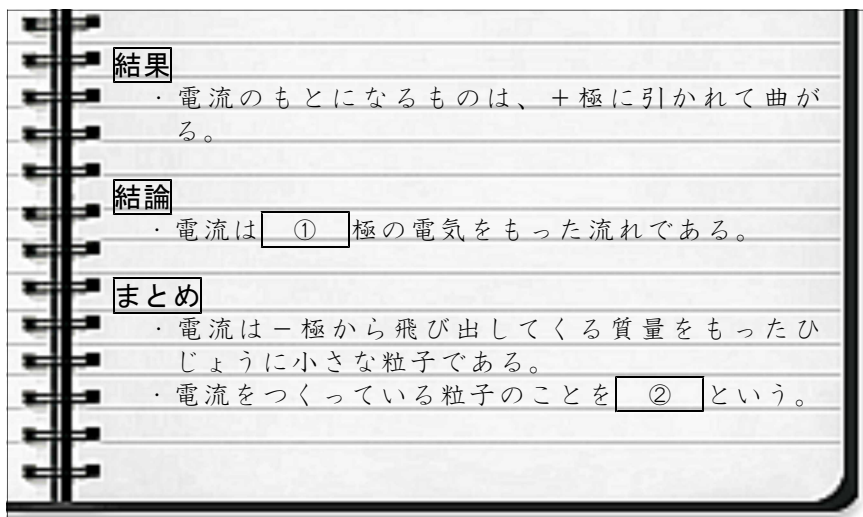 結果
・電流のもとになるものは、＋極に引かれて曲が
る。
結論
・電流は ① 極の電気をもった流れである。
まとめ
・電流は－極から飛び出してくる質量をもったひ
じょうに小さな粒子である。
・電流をつくっている粒子のことを ② という。